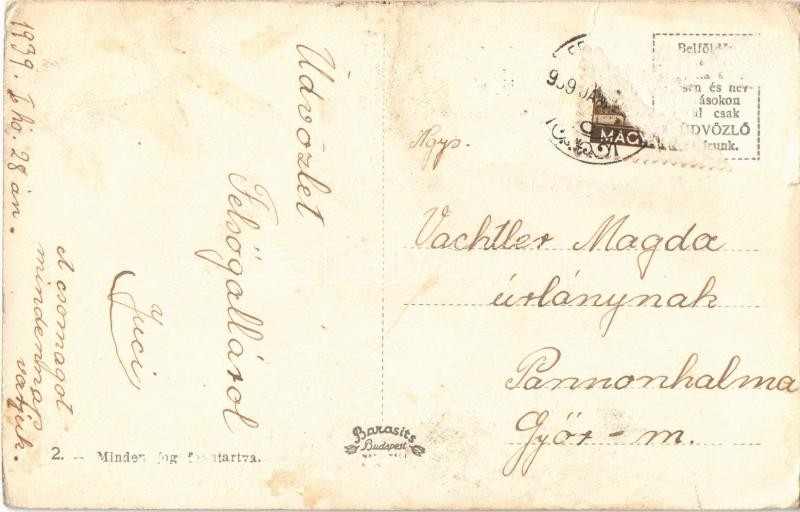 1939. I. hó. 28 án.
Üdvözlet
Felsőgalláról
Juci
A csomagot
mindennap
várjuk.
2. — Minden jog fenntartva.
Barasits
Budapest
939 JAN
MAG
Belföldön
sen és nev-
ásokon
ul csak
ÜDVÖZLŐ
írunk.
Ngys.
Vachtler Magda
úrlánynak
Pannonhalma
Győr-m.